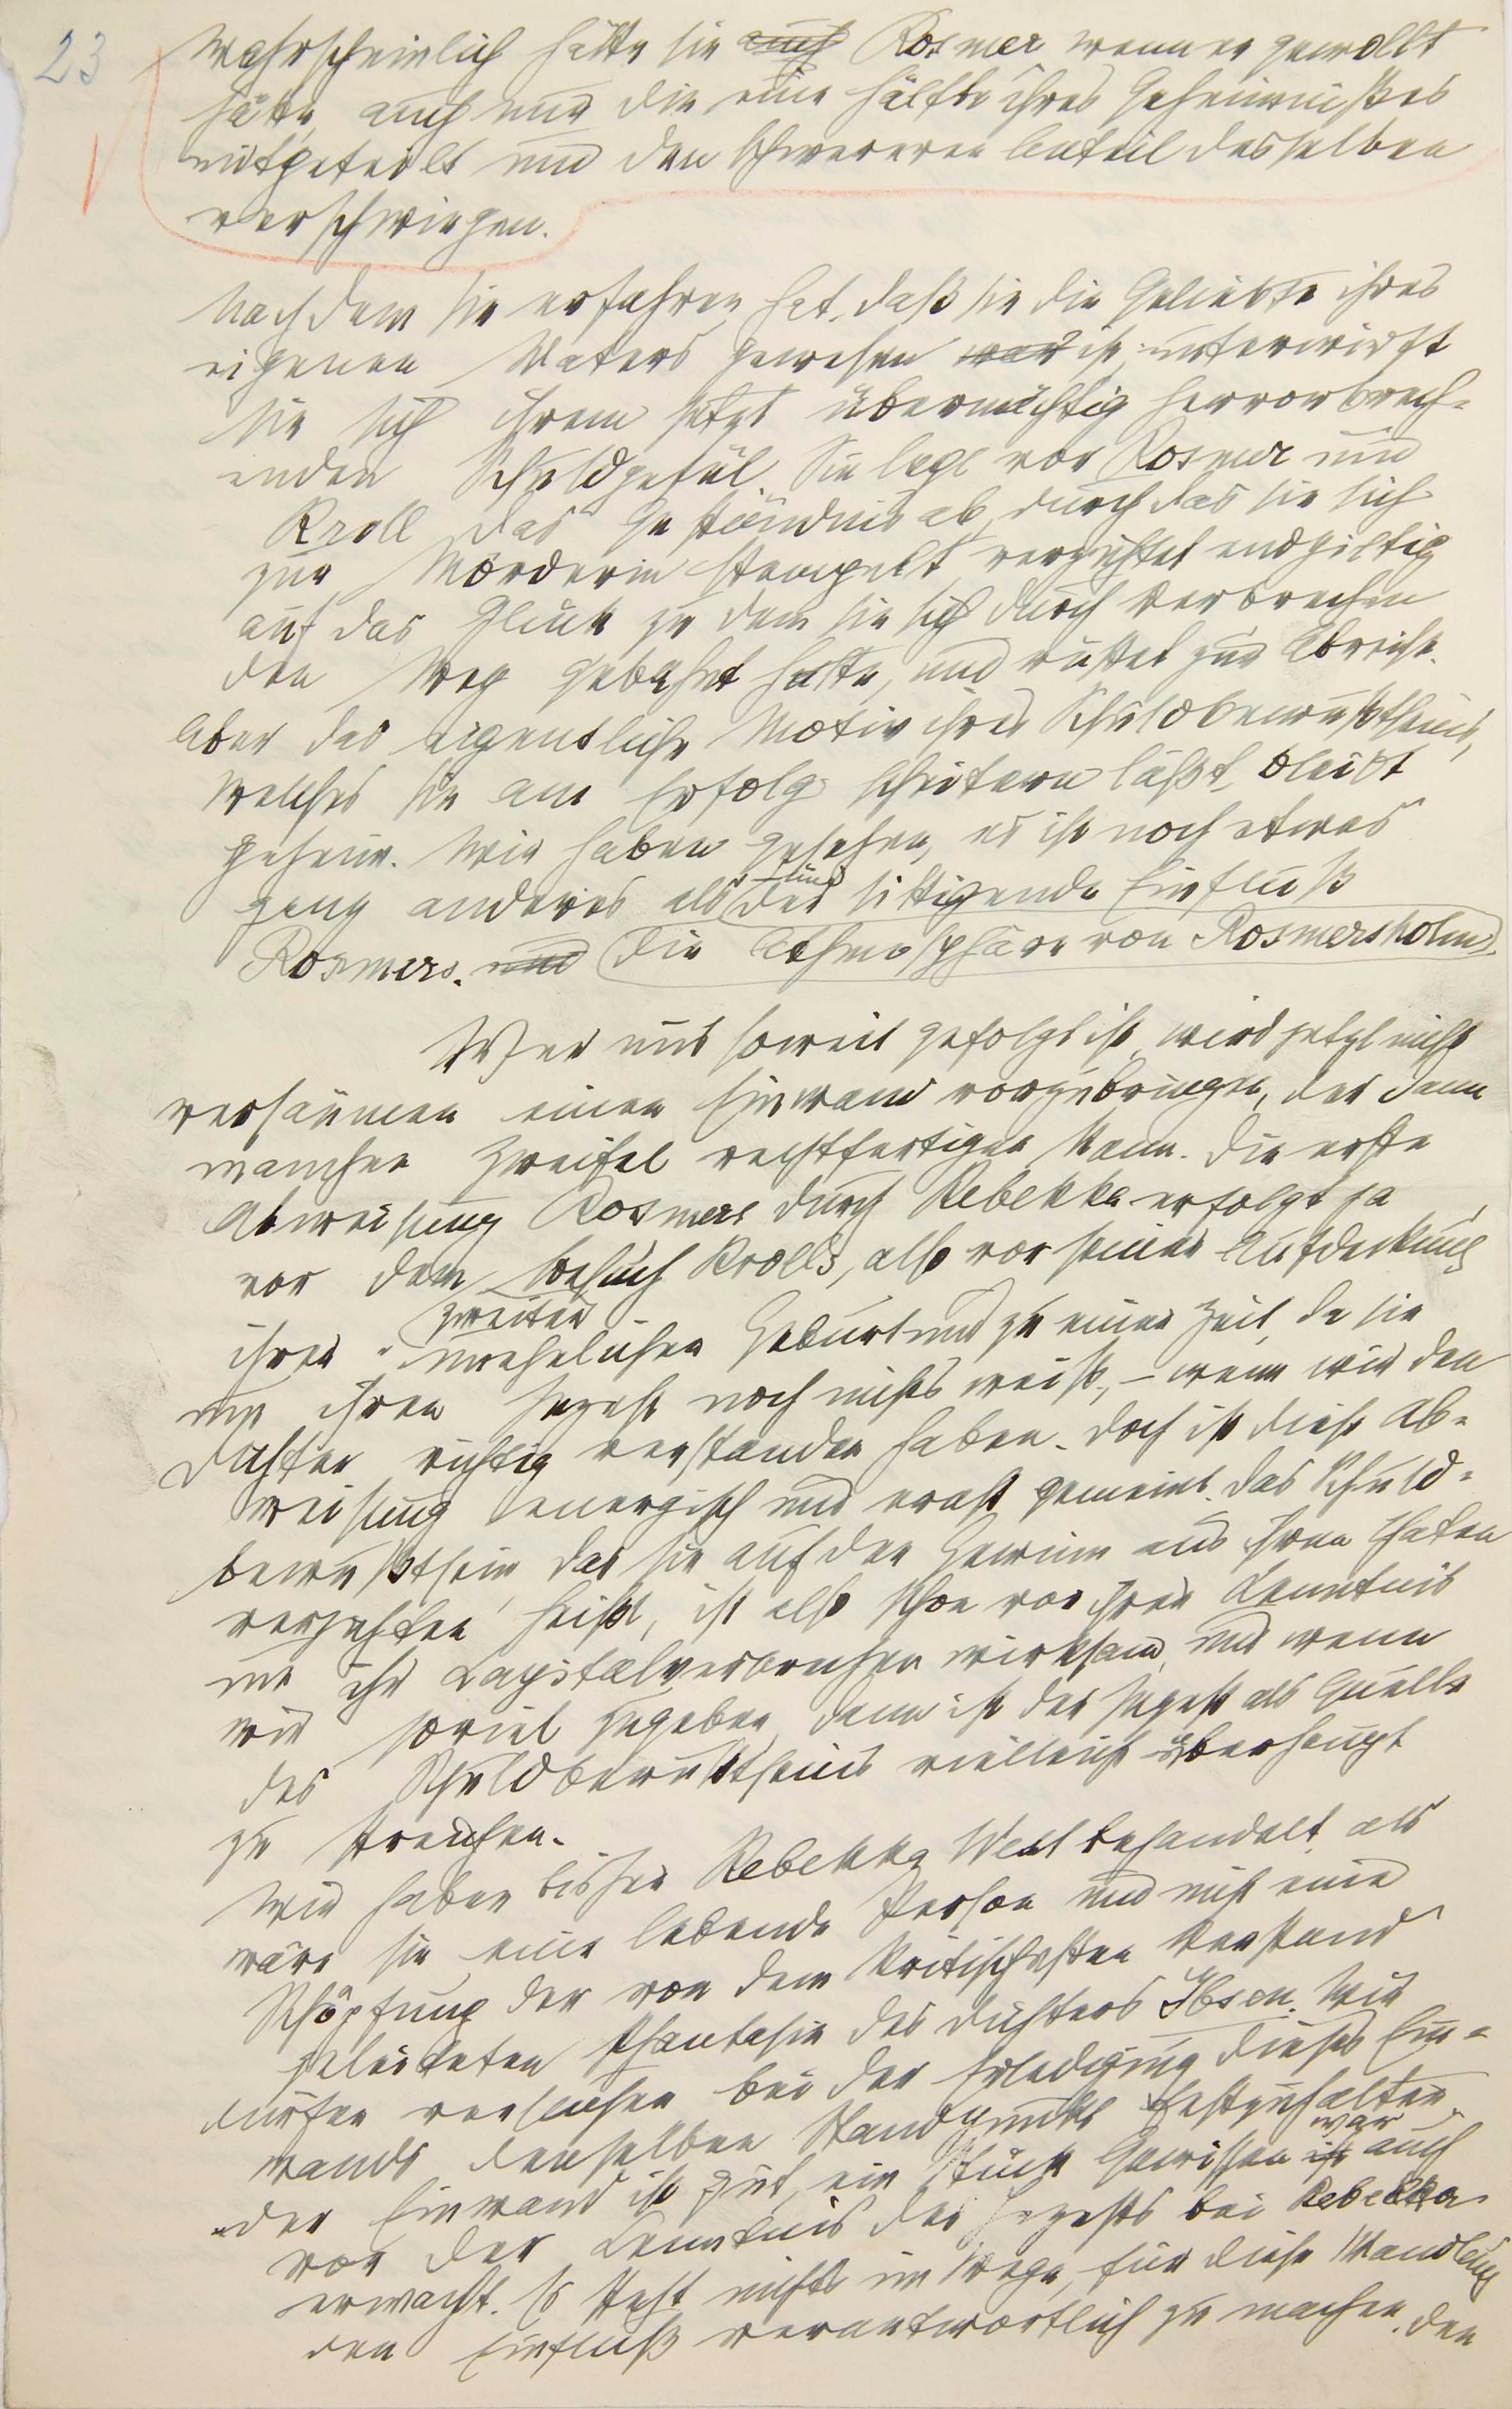 23
Wahrscheinlich hätte sie auch Rosmer wenn er gewollt
hätte, auch nur die eine Hälfte ihres Geheimnißes
mitgeteilt und den schwereren Anteil desselben
verschwiegen.
Nachdem sie erfahren hat, daß sie die Geliebte ihres
eigenen Vaters gewesen war ist, unterwirft
sie sich ihrem jetzt übermächtig hervorbrech-
enden Schuldgefül. Sie legt vor Rosmer und
Kroll das Geständnis ab, durch das sie sich
zur Mörderin stempelt, verzichtet endgiltig
auf das Glück zu dem sie sich durch Verbrechen
den Weg gebahnt hatte, und rüstet zur Abreise.
Aber das eigentliche Motiv ihres Schuldbewußtseins,
welches sie am Erfolg scheitern läßt, bleibt
geheim. Wir haben gesehen, es ist noch etwas
ganz anderes als der sittigende Einfluß
und
Rosmers. und die Athmosphäre von Rosmersholm.
Wer uns soweit gefolgt ist, wird jetzt nicht
versäumen einen Einwand vorzubringen, der dann
manchen Zweifel rechtfertigen kann. Die erste
Abweisung Rosmers durch Rebekka erfolgt ja
vor dem Besuch Krolls, also vor seiner Aufdeckung
zweiten
ihrer unehelichen Geburt und zu einer Zeit, da sie
um ihren Inzest noch nichts weiß, – wenn wir den
Dichter richtig verstanden haben. Doch ist diese Ab-
weisung energisch und ernst gemeint. Das Schuld-
bewußtsein, das sie auf den Gewinn aus ihren Thaten
verzichten heißt, ist also schon vor ihrer Kenntnis
um ihr Kapitalverbrechen wirksam, und wenn
wir soviel zugeben, dann ist der Inzest als Quelle
des Schuldbewußtseins vielleicht überhaupt
zu streichen.
Wir haben bisher Rebekka West behandelt, als
wäre sie eine lebende Person und nicht eine
Schöpfung der von dem kritischesten Verstand
geleiteten Phantasie des Dichters Ibsen. Wir
dürfen versuchen bei der Erledigung dieses Ein-
wands denselben Standpunkt festzuhalten.
Der Einwand ist gut, ein Stück Gewissen ist auch
war
vor der Kenntnis des Inzests bei Rebekka
erwacht. Es steht nichts im Wege, für diese Wandlung
den Einfluß verantwortlich zu machen, den